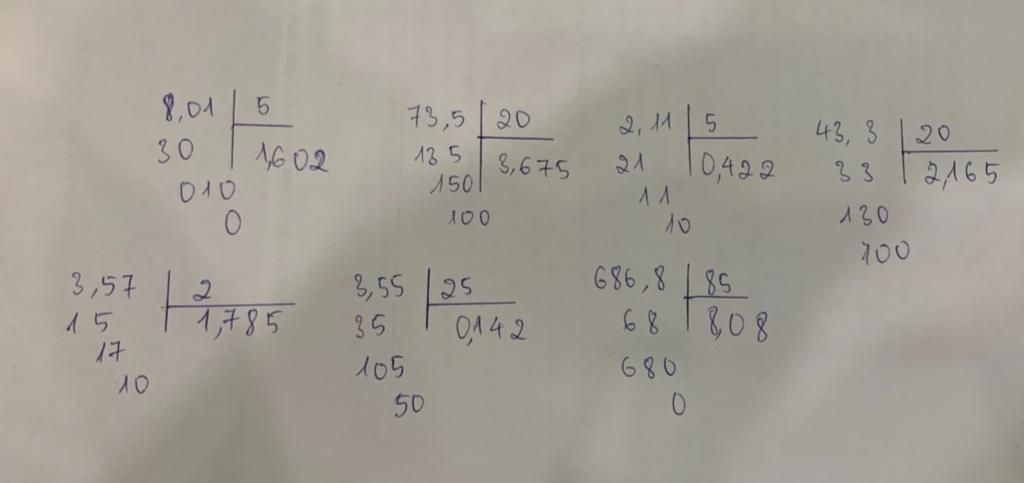 8,01 5
30 1,602
010
0
73,5 20
135 3,675
150
100
2,11 5
21 0,422
11
10
43,3 20
33 2,165
130
100
3,57 2
15 1,785
17
10
3,55 25
35 0,142
105
50
686,8 85
68 8,08
680
0